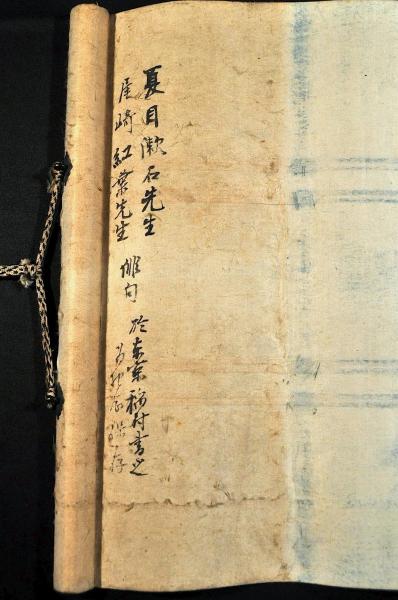 夏目漱石先生
尾崎紅葉先生 俳句 於東京 稲村書之
保存